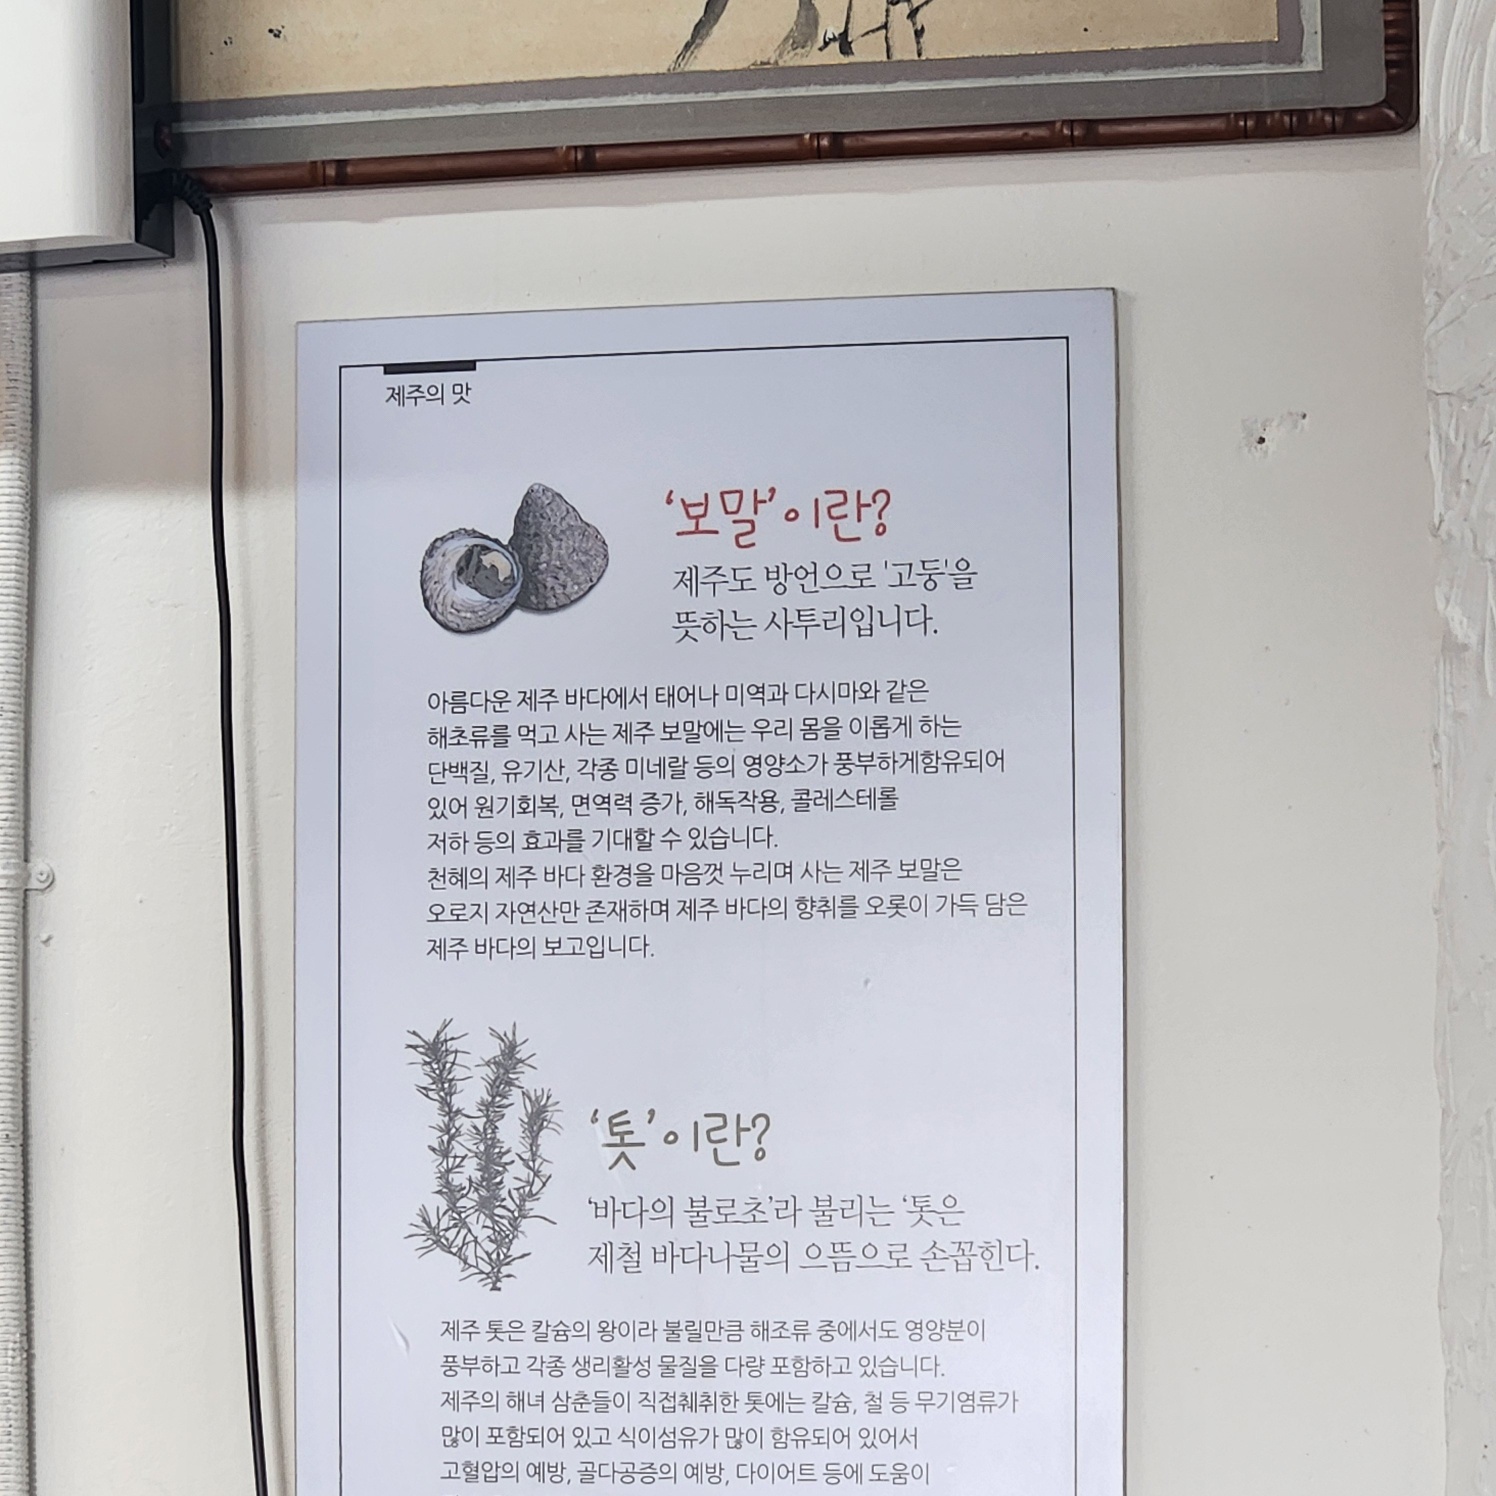 제주의 맛
'보말'이란?
제주도 방언으로 '고둥'을
뜻하는 사투리입니다.
아름다운 제주 바다에서 태어나 미역과 다시마와 같은
해초류를 먹고 사는 제주 보말에는 우리 몸을 이롭게 하는
단백질, 유기산, 각종 미네랄 등의 영양소가 풍부하게함유되어
있어 원기회복, 면역력 증가, 해독작용, 콜레스테롤
저하 등의 효과를 기대할 수 있습니다.
천혜의 제주 바다 환경을 마음껏 누리며 사는 제주 보말은
오로지 자연산만 존재하며 제주 바다의 향취를 오롯이 가득 담은
제주 바다의 보고입니다.
'톳'이란?
'바다의 불로초'라 불리는 '톳은
제철 바다나물의 으뜸으로 손꼽힌다.
제주 톳은 칼슘의 왕이라 불릴만큼 해조류 중에서도 영양분이
풍부하고 각종 생리활성 물질을 다량 포함하고 있습니다.
제주의 해녀 삼춘들이 직접췌취한 톳에는 칼슘, 철 등 무기염류가
많이 포함되어 있고 식이섬유가 많이 함유되어 있어서
고혈압의 예방, 골다공증의 예방, 다이어트 등에 도움이